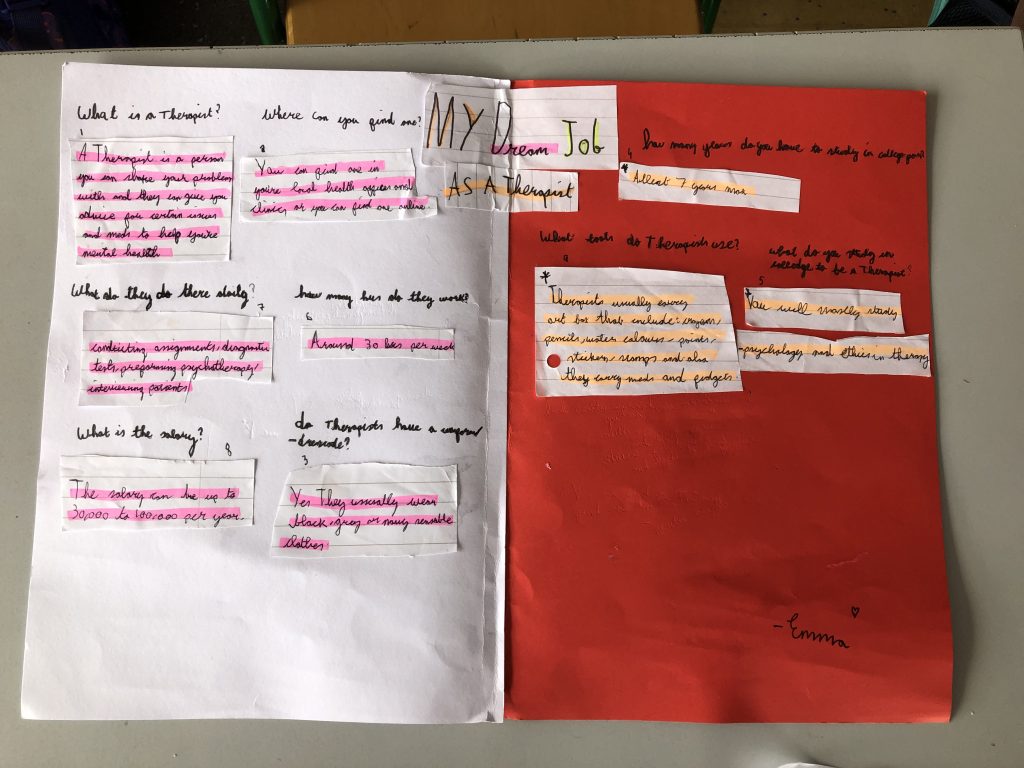 MY Dream Job
AS A Therapist
What is a Therapist?
1
A Therapist is a person
you can share your problems
with and they can give you
advice for certain issues
and meds to help you're
mental health
Where can you find one?
2
You can find one in
you're local health offices and
clinics or you can find one online
What do they do there
7
conducting assignments, diagnostic
tests, preforming psychotherapy,
interviewing patients
how many hrs do they work?
6
Around 30 hrs per week
What is the salary?
8
The salary can be up to
30,000 to 100,000 per year.
do Therapists have a uniform/
-dresscode?
3
Yes They usually wear
black, grey or navy sensible
clothes
how many years do you have to study in college for?
4
* Atleast 7 years max
What tools do Therapists use?
9
*
Therapists usually carry
art box that include: crayons,
pencils, water colours - paints,
stickers, stamps and also
they carry meds and fidgets.
what do you study in
colledge to be a Therapist?
5
* You will mostly study
-psychology and ethics in therapy
- Emma